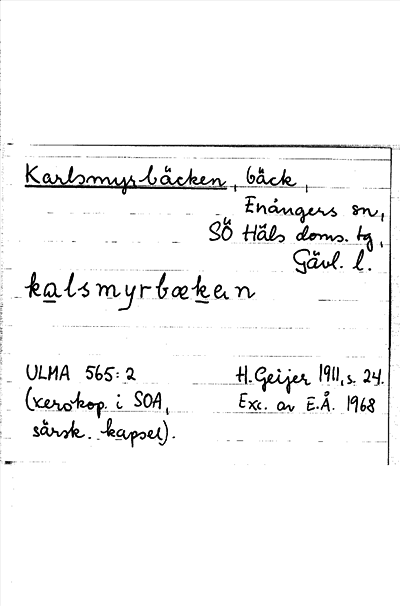 Karlsmyrbäcken, bäck,
Enångers sn,
SÖ Häls doms. tg,
Gävl. l.
kalsmyrbæken
ULMA 565:2
H. Geijer 1911, s. 24.
(xerokop. i SOA,
Exc. av E.Å. 1968
särsk. kapsel).